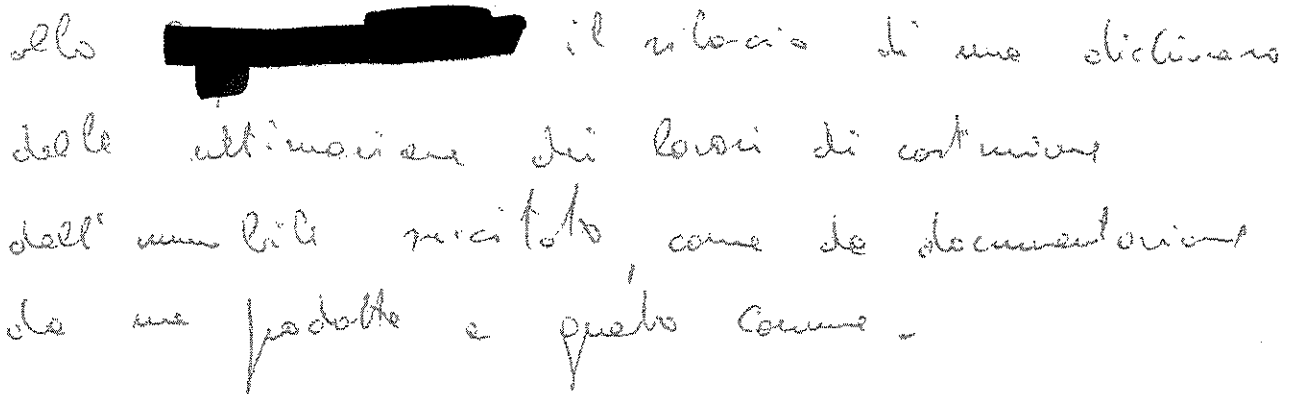 alla il rilascio di una dichiara
della ultimazione dei lavori di costruzione
dell'immobile suicitato come da documentazione
da me prodotta a questo Comune.